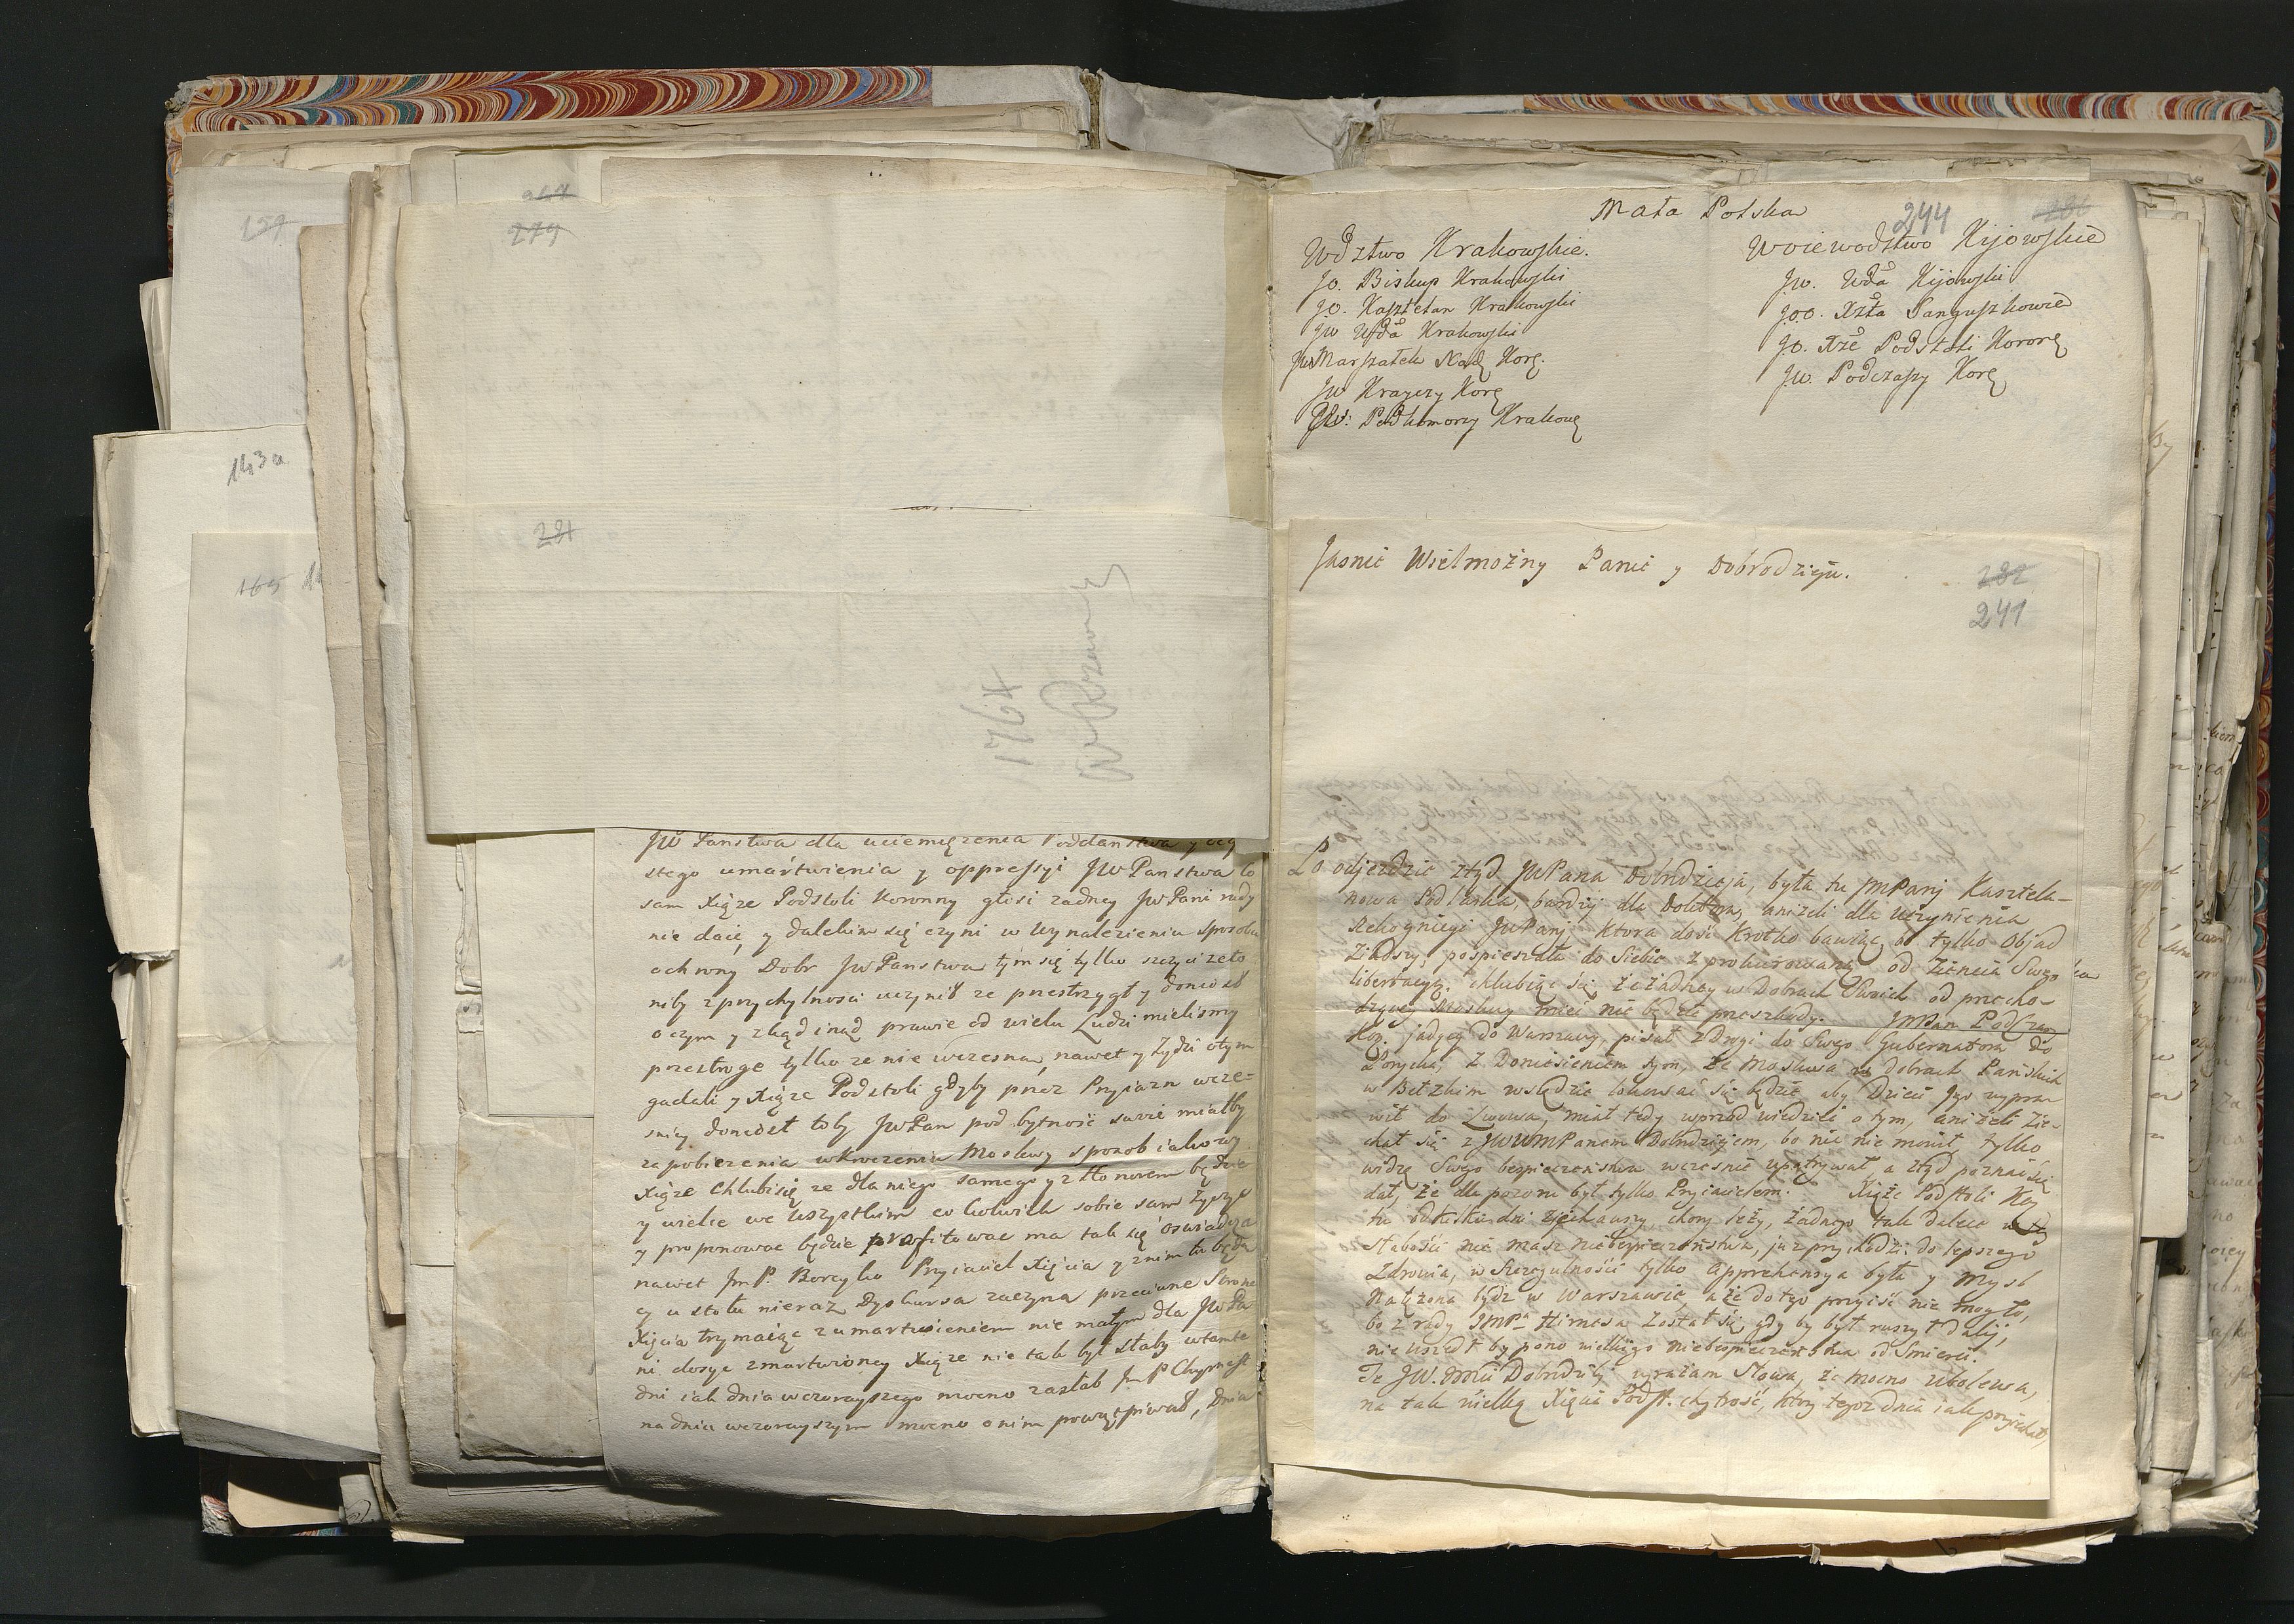 159
143a
165
267
279
281
1764
JW Panstwa dla uciemięzenia Poddanstwa y
stego umartwienia y oppressyi JW Panstwa co
sam Xiąze Podstoli Koronny głosi zadney JW Pani rady
nie daie, y dalekim się czyni w wynalezieniu sposobu
ochrony Dobr JW Panstwa tym się tylko szczyci ze to
niby z przychylnosci uczynił ze przestrzygł y doniosł
o czym y zkąd inąd prawie od wielu Ludzi mielismy
przestroge tylko ze nie wczesną, nawet y Zydzi o tym
gadali y Xiąze Podstoli gdyby przez Przyiazn wcze-
sniey doniosł toby JW Pan pod bytność swoie miałby
zapobiezenia wkroczeniu Moskwy sposob iakowy
Xiąze chlubi się ze dla niego samego y z Honorem będzie
y wielce we wszystkim co kolwiek sobie sam zyczyć
y proponowac będzie profitowac ma tak się oswiadcza
nawet Jm P. Boreyko Przyiaciel Xięcia y z nim tu będą
cy u stołu nieraz Dyskursa zaczyna przeciwne Strone
Xięcia trzymaiąc z umartwieniem nie małym dla JW Pa
ni dosyc zmartwioney Xiąze nie tak był słaby w tamte
dni iak dnia wczorayszego mocno zasłab Jm P
na dniu wczorayszym mocno o nim powątpiewał, Dnia
Mała Polska
244
286
Wdztwo Krakowskie.
Jo. Biskup Krakowski
Jo. Kasztelan Krakowski
Jw Wda Krakowski
Jw Marszałek Nad Kor
Jw Krayczy Kor
Jw: Podkomorzy Krakow
Woiewodstwo Kijowskie
Jw. Wda Kijowski
Joo. Xżta Sanguszkowie
Jo. Xże Podstoli Koron
Jw. Podczaszy Kor
Jasnie Wielmożny Panie y Dobrodzieju.
282
241
Po odjezdzie ztąd JWPana Dobrodzieja, była tu JmPani Kasztela-
nowa Podlaska, bardziej dla aniżeli dla uczynienia
JWPani ktora dość krotko bawiąc bo tylko Objad
ziadszy, pospieszała do siebie z prokurowaną od Zięcia Swego
libertacyą. chlubiąc się że żadney w Dobrach Swoich od przecho-
dzącey Moskwy mieć nie będzie przeszkody. JmPan Podczaszy
Kor. jadący do Warszawy, pisał z Drogi do Swego Gubernatora do
z Doniesieniem tym, że Moskwa w dobrach Pańskich
w Bełzkim wszędzie lokować się będzie aby Dzieci Jego wypra-
wił do Lwowa, miał tedy wprzod wiedzieć o tym, aniżeli zie-
chał się z JWWMPanem Dobrodziejem, bo nic nie mowił tylko
widzę Swego bezpieczeństwa wczesnie upatrywał, a ztąd poznać się
dał, że dla pozoru był tylko Przyiacielem. Xiąże Podstoli Kor
tu od kilku dni zjechawszy, chory leży, żadnego tak dalece w tey
słabości nie masz niebezpieczeństwa, już przychodzi do lepszego
Zdrowia, w szczegulności tylko apprehensya była y Mysl
natężona bydz w Warszawie, a że do tego przyiść nie mogło,
bo z rady JMP. Hirnesa został się, gdy by był ruszył daley,
nie uszedł by pono wielkiego niebezpieczeństwa od Smierci.
Te JW. Dobrodziey wyrażam Słowa, że mocno ubolewa,
na tak wielką Xięcia Podst. chytrość, ktory tegoż dnia iak przyiechał,